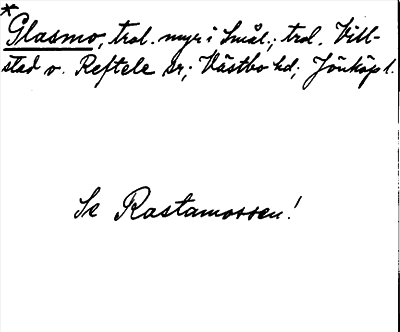 *
Glasmo, trol. myr i Smål.; trol. Vill-
stad o. Reftele sr; Västbo hd; Jönköp l.
Se Rastamossen!